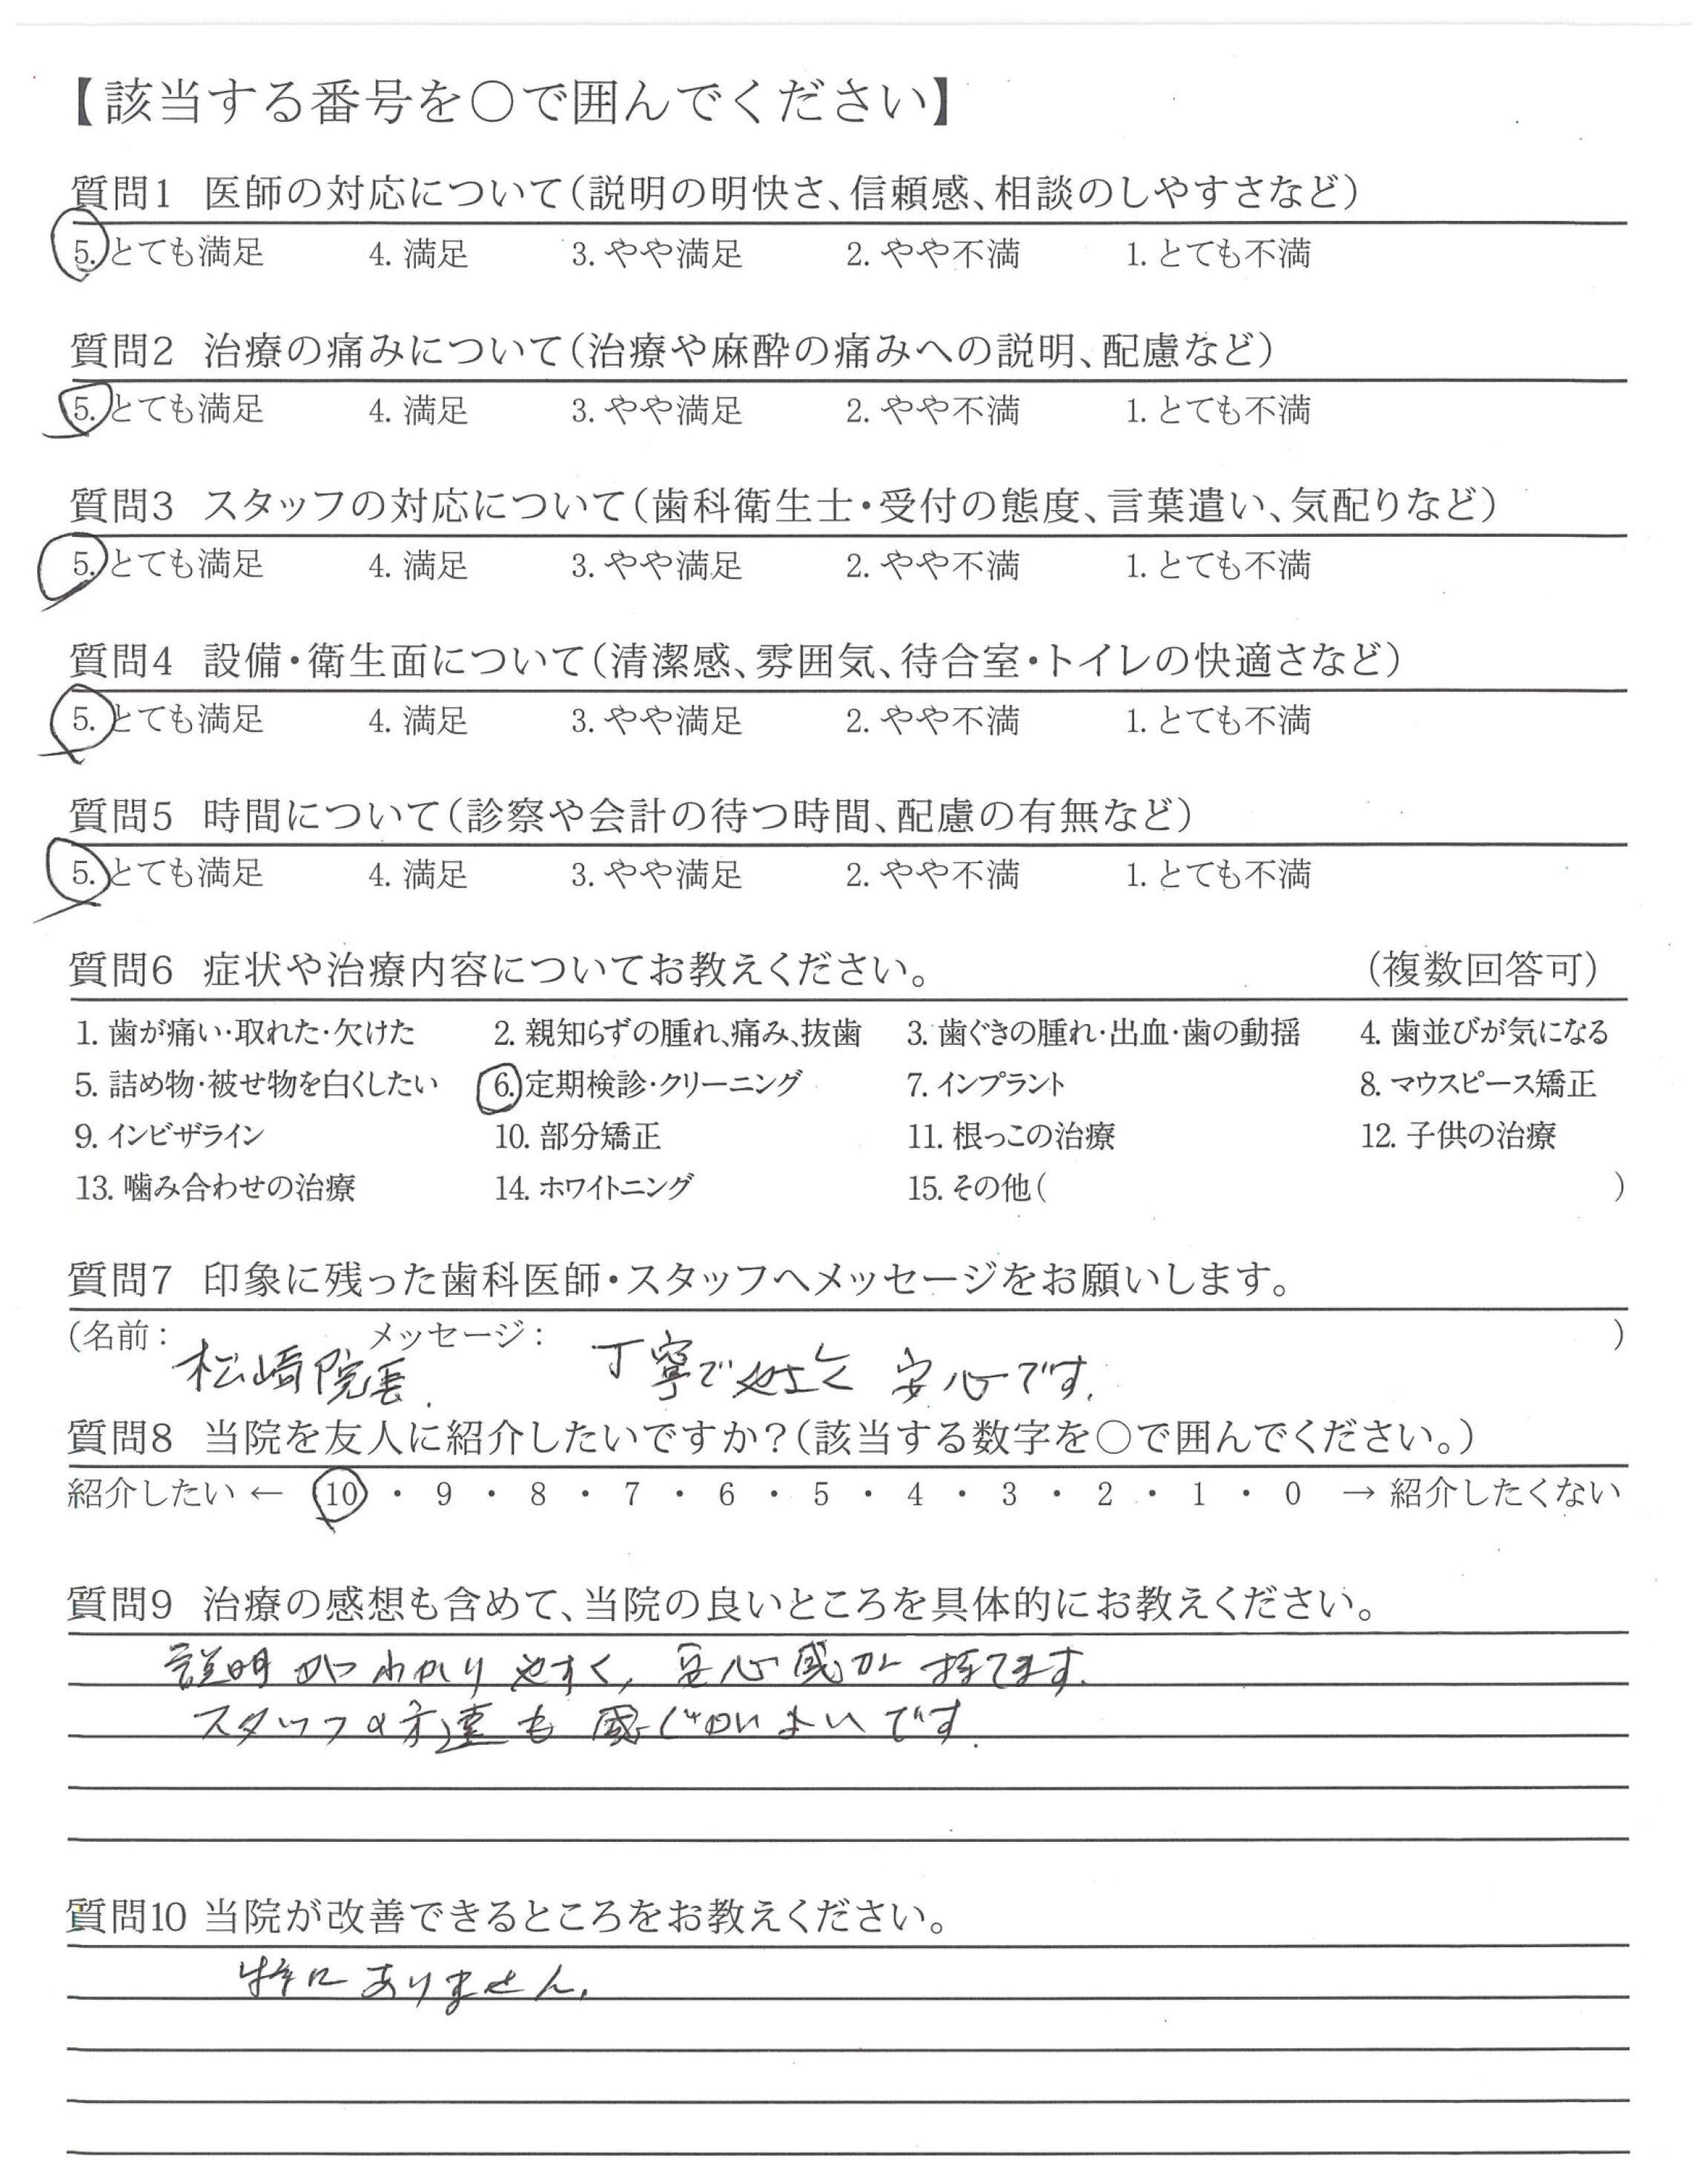 【該当する番号を○で囲んでください】
質問1 医師の対応について(説明の明快さ、信頼感、相談のしやすさなど)
5. とても満足 4. 満足 3. やや満足 2. やや不満 1. とても不満
質問2 治療の痛みについて(治療や麻酔の痛みへの説明、配慮など)
5. とても満足 4. 満足 3. やや満足 2. やや不満 1. とても不満
質問3 スタッフの対応について(歯科衛生士・受付の態度、言葉遣い、気配りなど)
5. とても満足 4. 満足 3. やや満足 2. やや不満 1. とても不満
質問4 設備・衛生面について(清潔感、雰囲気、待合室・トイレの快適さなど)
5. とても満足 4. 満足 3. やや満足 2. やや不満 1. とても不満
質問5 時間について(診察や会計の待つ時間、配慮の有無など)
5. とても満足 4. 満足 3. やや満足 2. やや不満 1. とても不満
質問6 症状や治療内容についてお教えください。 (複数回答可)
1. 歯が痛い・取れた・欠けた 2. 親知らずの腫れ、痛み、抜歯 3. 歯ぐきの腫れ・出血・歯の動揺 4. 歯並びが気になる
5. 詰め物・被せ物を白くしたい 6. 定期検診・クリーニング 7. インプラント 8. マウスピース矯正
9. インビザライン 10. 部分矯正 11. 根っこの治療 12. 子供の治療
13. 噛み合わせの治療 14. ホワイトニング 15. その他( )
質問7 印象に残った歯科医師・スタッフへメッセージをお願いします。
(名前: メッセージ: )
松崎院長. 丁寧で 安心です.
質問8 当院を友人に紹介したいですか?(該当する数字を○で囲んでください。)
紹介したい ← 10 ・ 9 ・ 8 ・ 7 ・ 6 ・ 5 ・ 4 ・ 3 ・ 2 ・ 1 ・ 0 → 紹介したくない
質問9 治療の感想も含めて、当院の良いところを具体的にお教えください。
説明がわかりやすく, 安心感が持てます.
スタッフの方達も感じがよいです.
質問10 当院が改善できるところをお教えください。
特にありません.